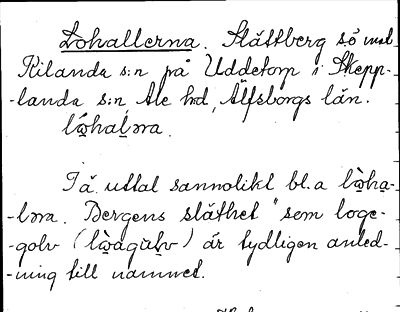 Lohallerna. Slättberg sö mot
Kilanda s:n på Uddetorp i Skepp-
-landa s:n Ale hd, Älfsborgs län.
lὼhaḷəra.
Tä. uttal sannolikt bl.a lὼha-
-lərа. Bergens släthet "sem loge-
-golv (lὼagωḷv) är tydligen anled-
-ning till namnet.